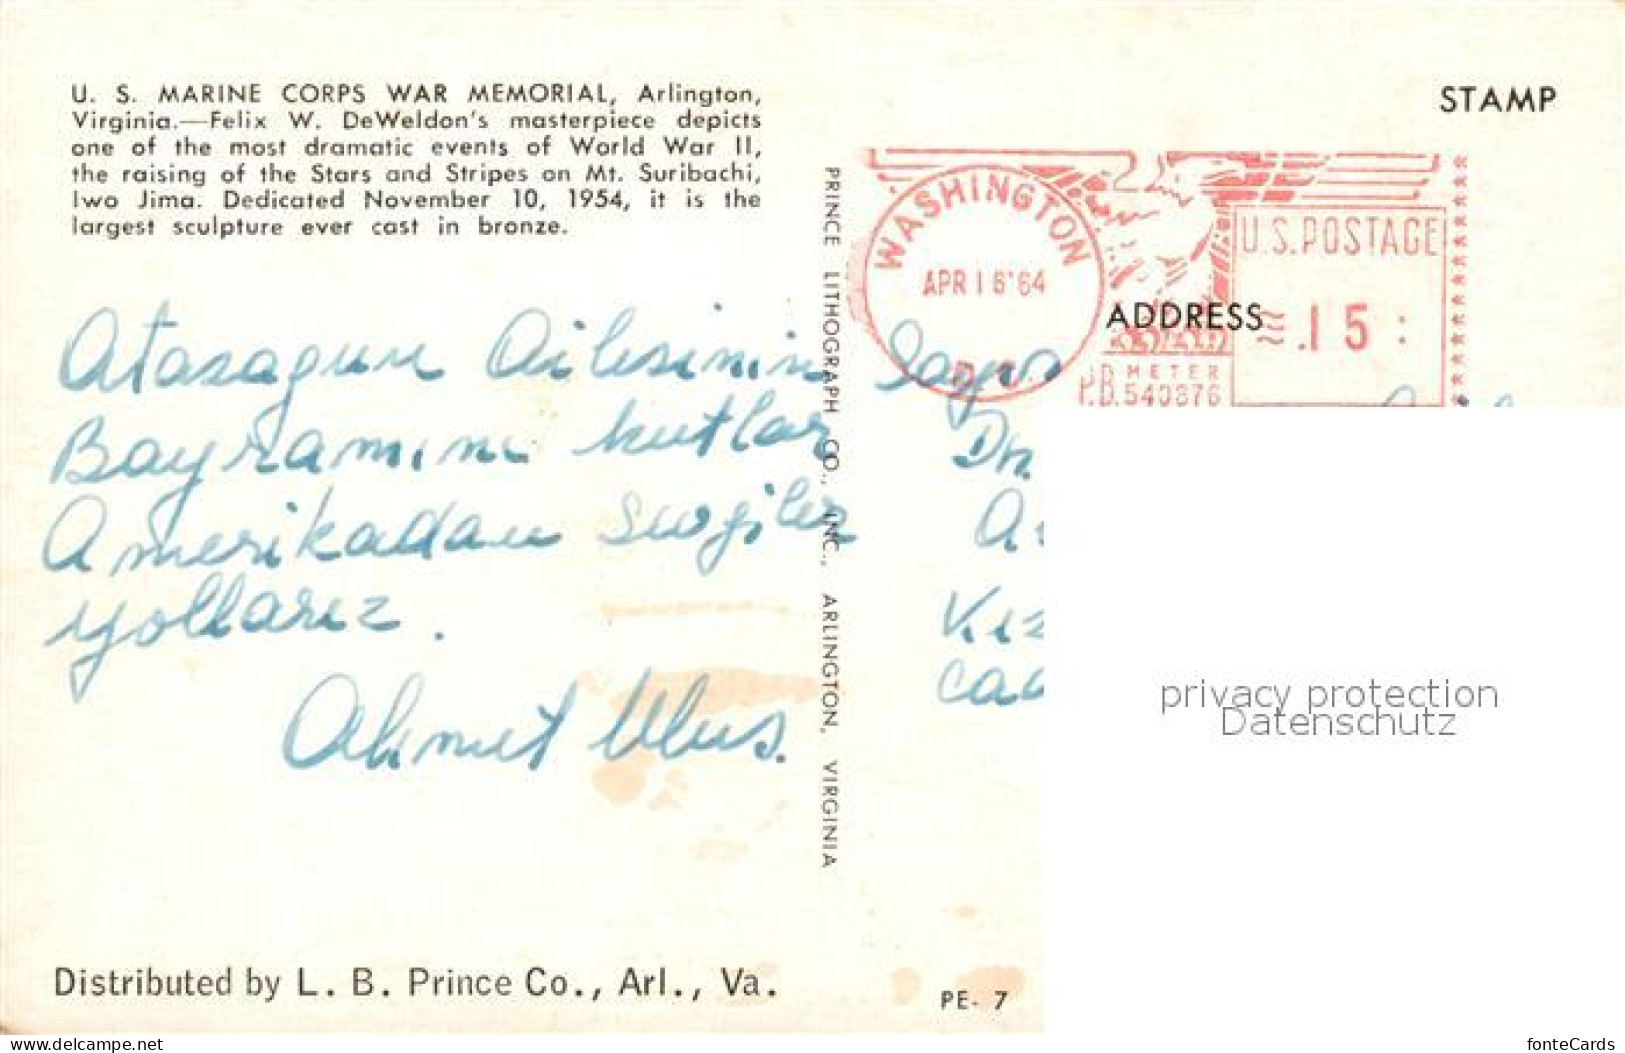 U. S. MARINE CORPS WAR MEMORIAL, Arlington,
Virginia.—Felix W. DeWeldon's masterpiece depicts
one of the most dramatic events of World War II,
the raising of the Stars and Stripes on Mt. Suribachi,
Iwo Jima. Dedicated November 10, 1954, it is the
largest sculpture ever cast in bronze.
Atasagun Ailesinin
Bayramını kutlar
Amerikadan
yollarız.
Ahmet Ulus.
Distributed by L. B. Prince Co., Arl., Va.
PRINCE LITHOGRAPH CO., INC., ARLINGTON, VIRGINIA
STAMP
WASHINGTON
APR 16'64
D.C.
U.S. POSTAGE
.15
METER
P.B. 540876
ADDRESS
PE- 7
privacy protection
Datenschutz
www.delcampe.net
fonteCards